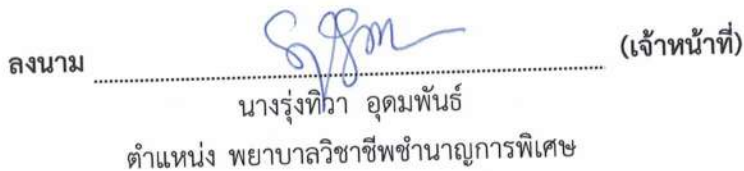 ลงนาม ............................................................ (เจ้าหน้าที่)
นางรุ่งทิวา อุดมพันธ์
ตำแหน่ง พยาบาลวิชาชีพชำนาญการพิเศษ